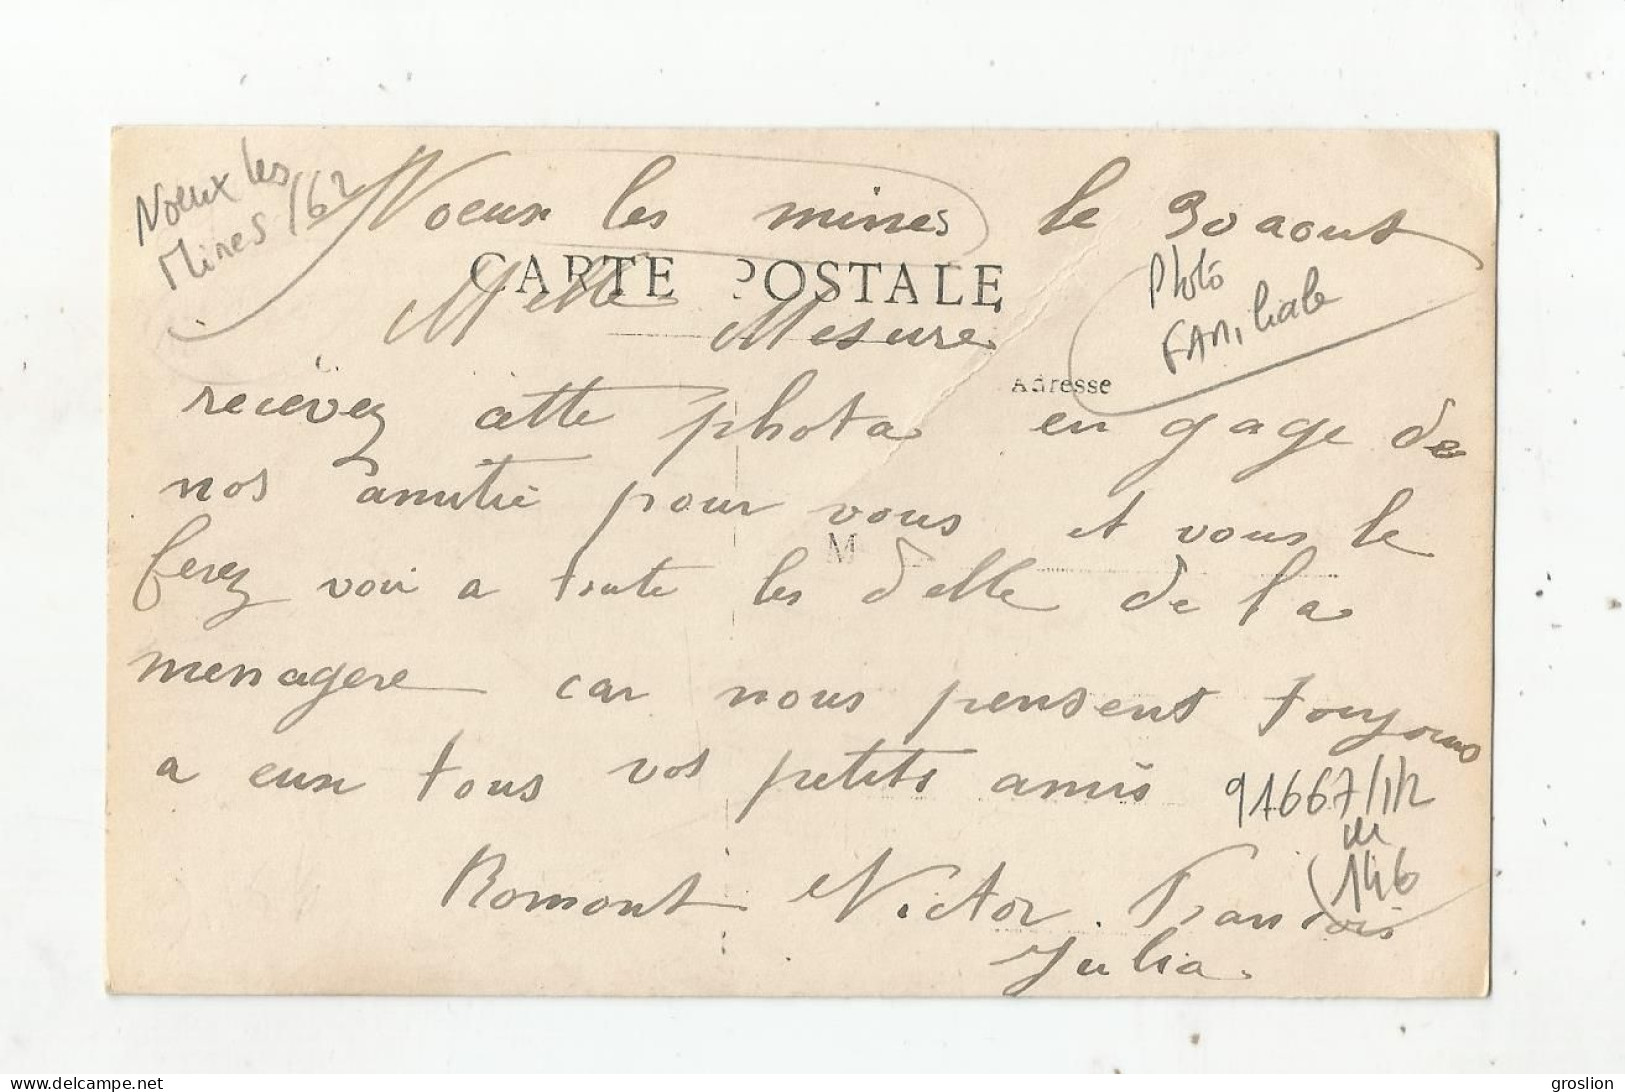 Noeux les
Mines /62
Noeux les mines le 30 aout
CARTE POSTALE
Photo
FAMiliale
Melle Mesure
Adresse
recevez cette photo en gage de
nos amitié pour vous et vous le
M
ferez voir a toute les delle de la
menagere car nous pensent toujours
a eux tous vos petits amis
91667/1/2
146
Romont Victor. Francois
Julia.
groslion